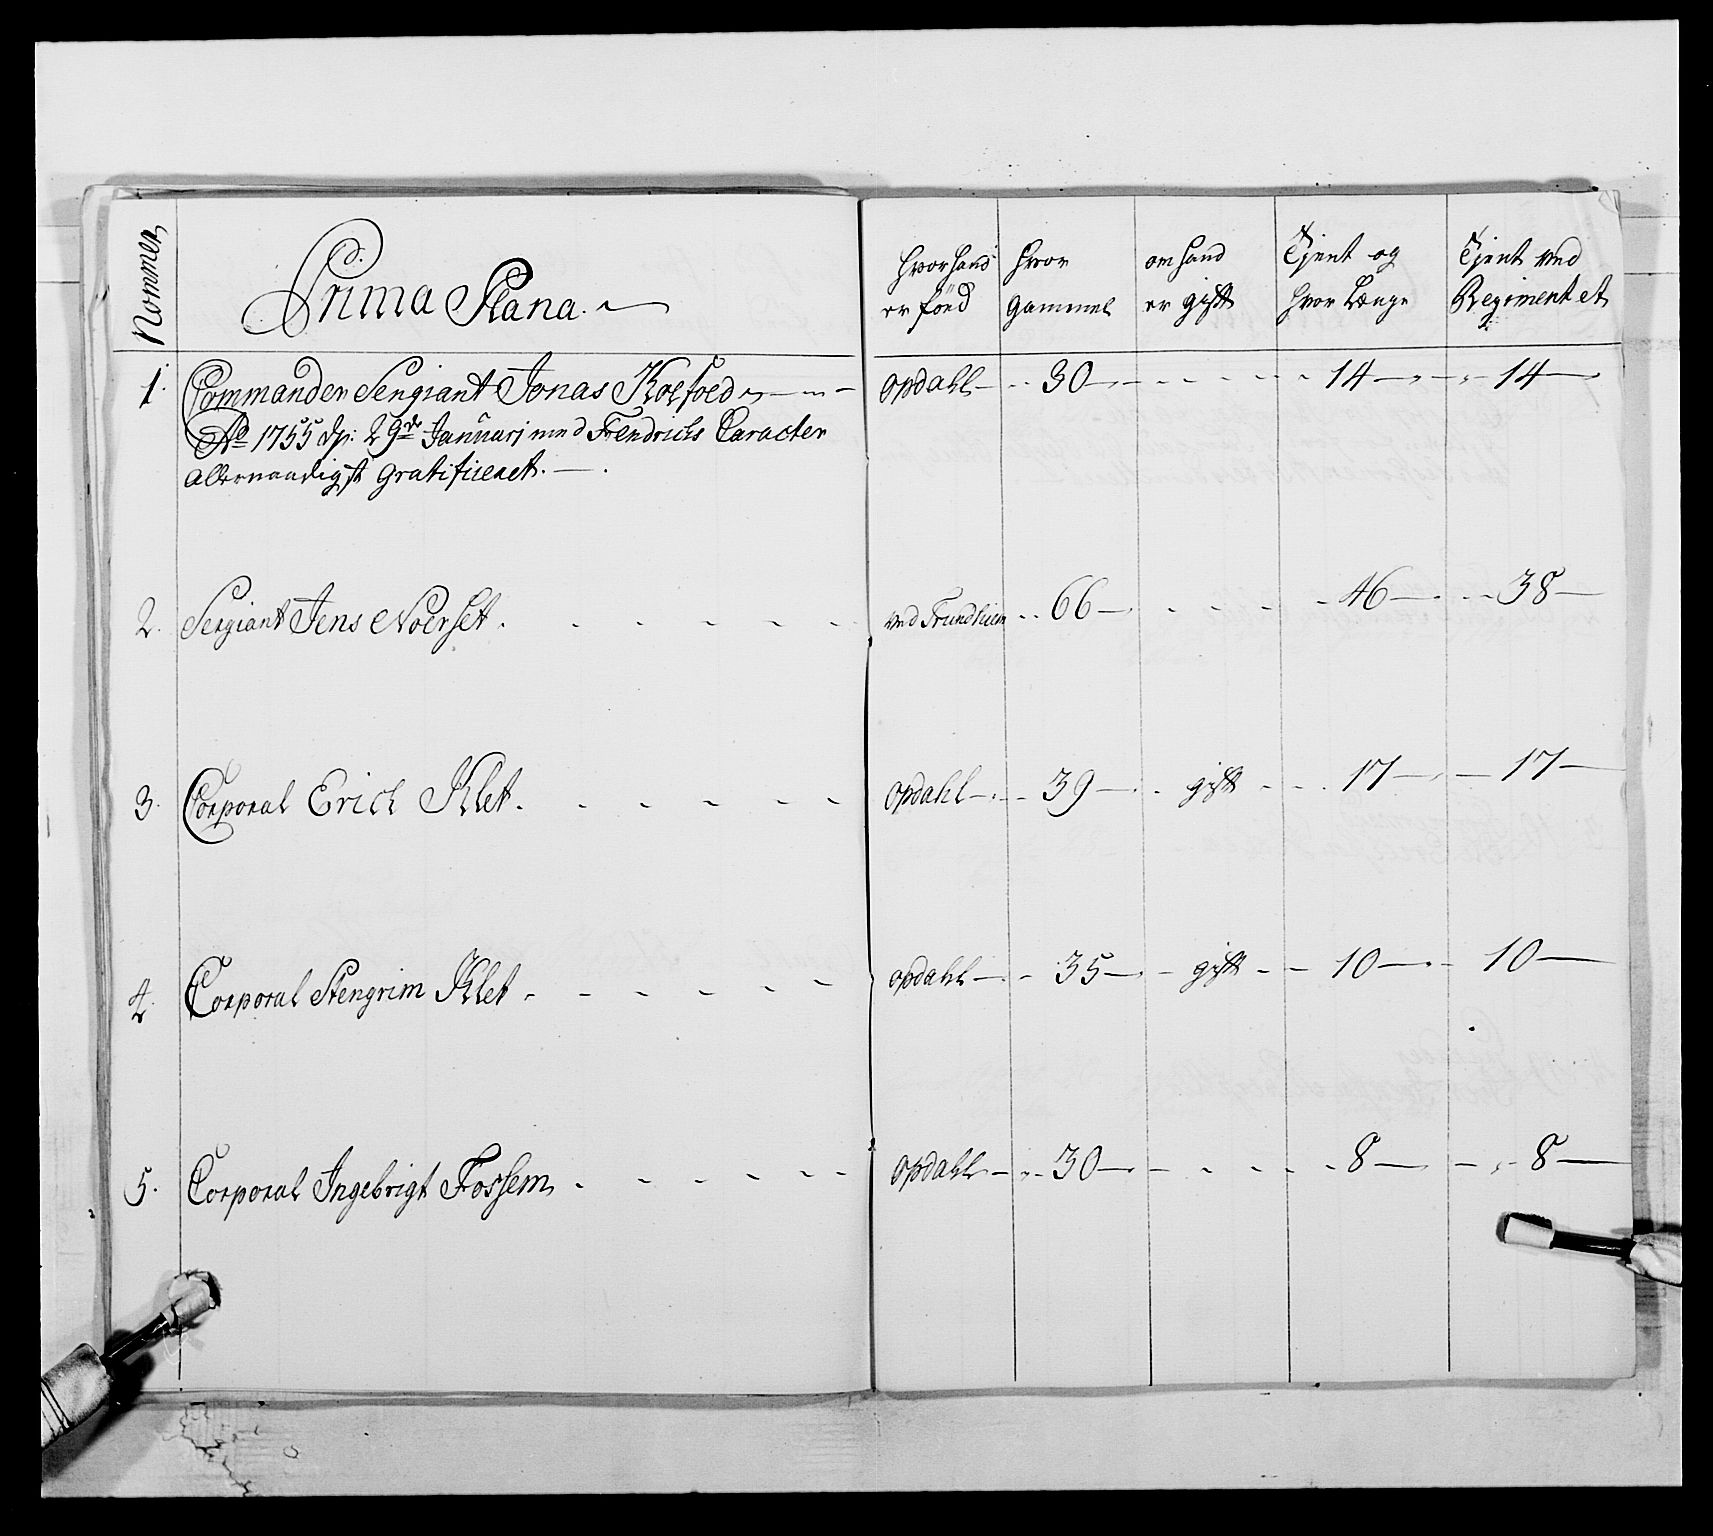 Nommer
Prima Plana.
hvor hand er föed
hvor gammel
om hand er gift
Tjent og hvor Længe
Tjent ved Regimentet
1. Commander Sergiant Jonas Koefoed opdahl 30 14 14
Ao 1755 d: 29de Januarj med Fendrichs Caracter
allernaadigst gratificeret.
2. Sergiant Jens Noerset. ved Trundhiem 66 46 38
3. Corporal Erich Klet. opdahl 39 gift 17 17
4. Corporal Stengrim Klet opdahl 35 gift 10 10
5. Corporal Ingebrigt Fossem opdahl 30 8 8